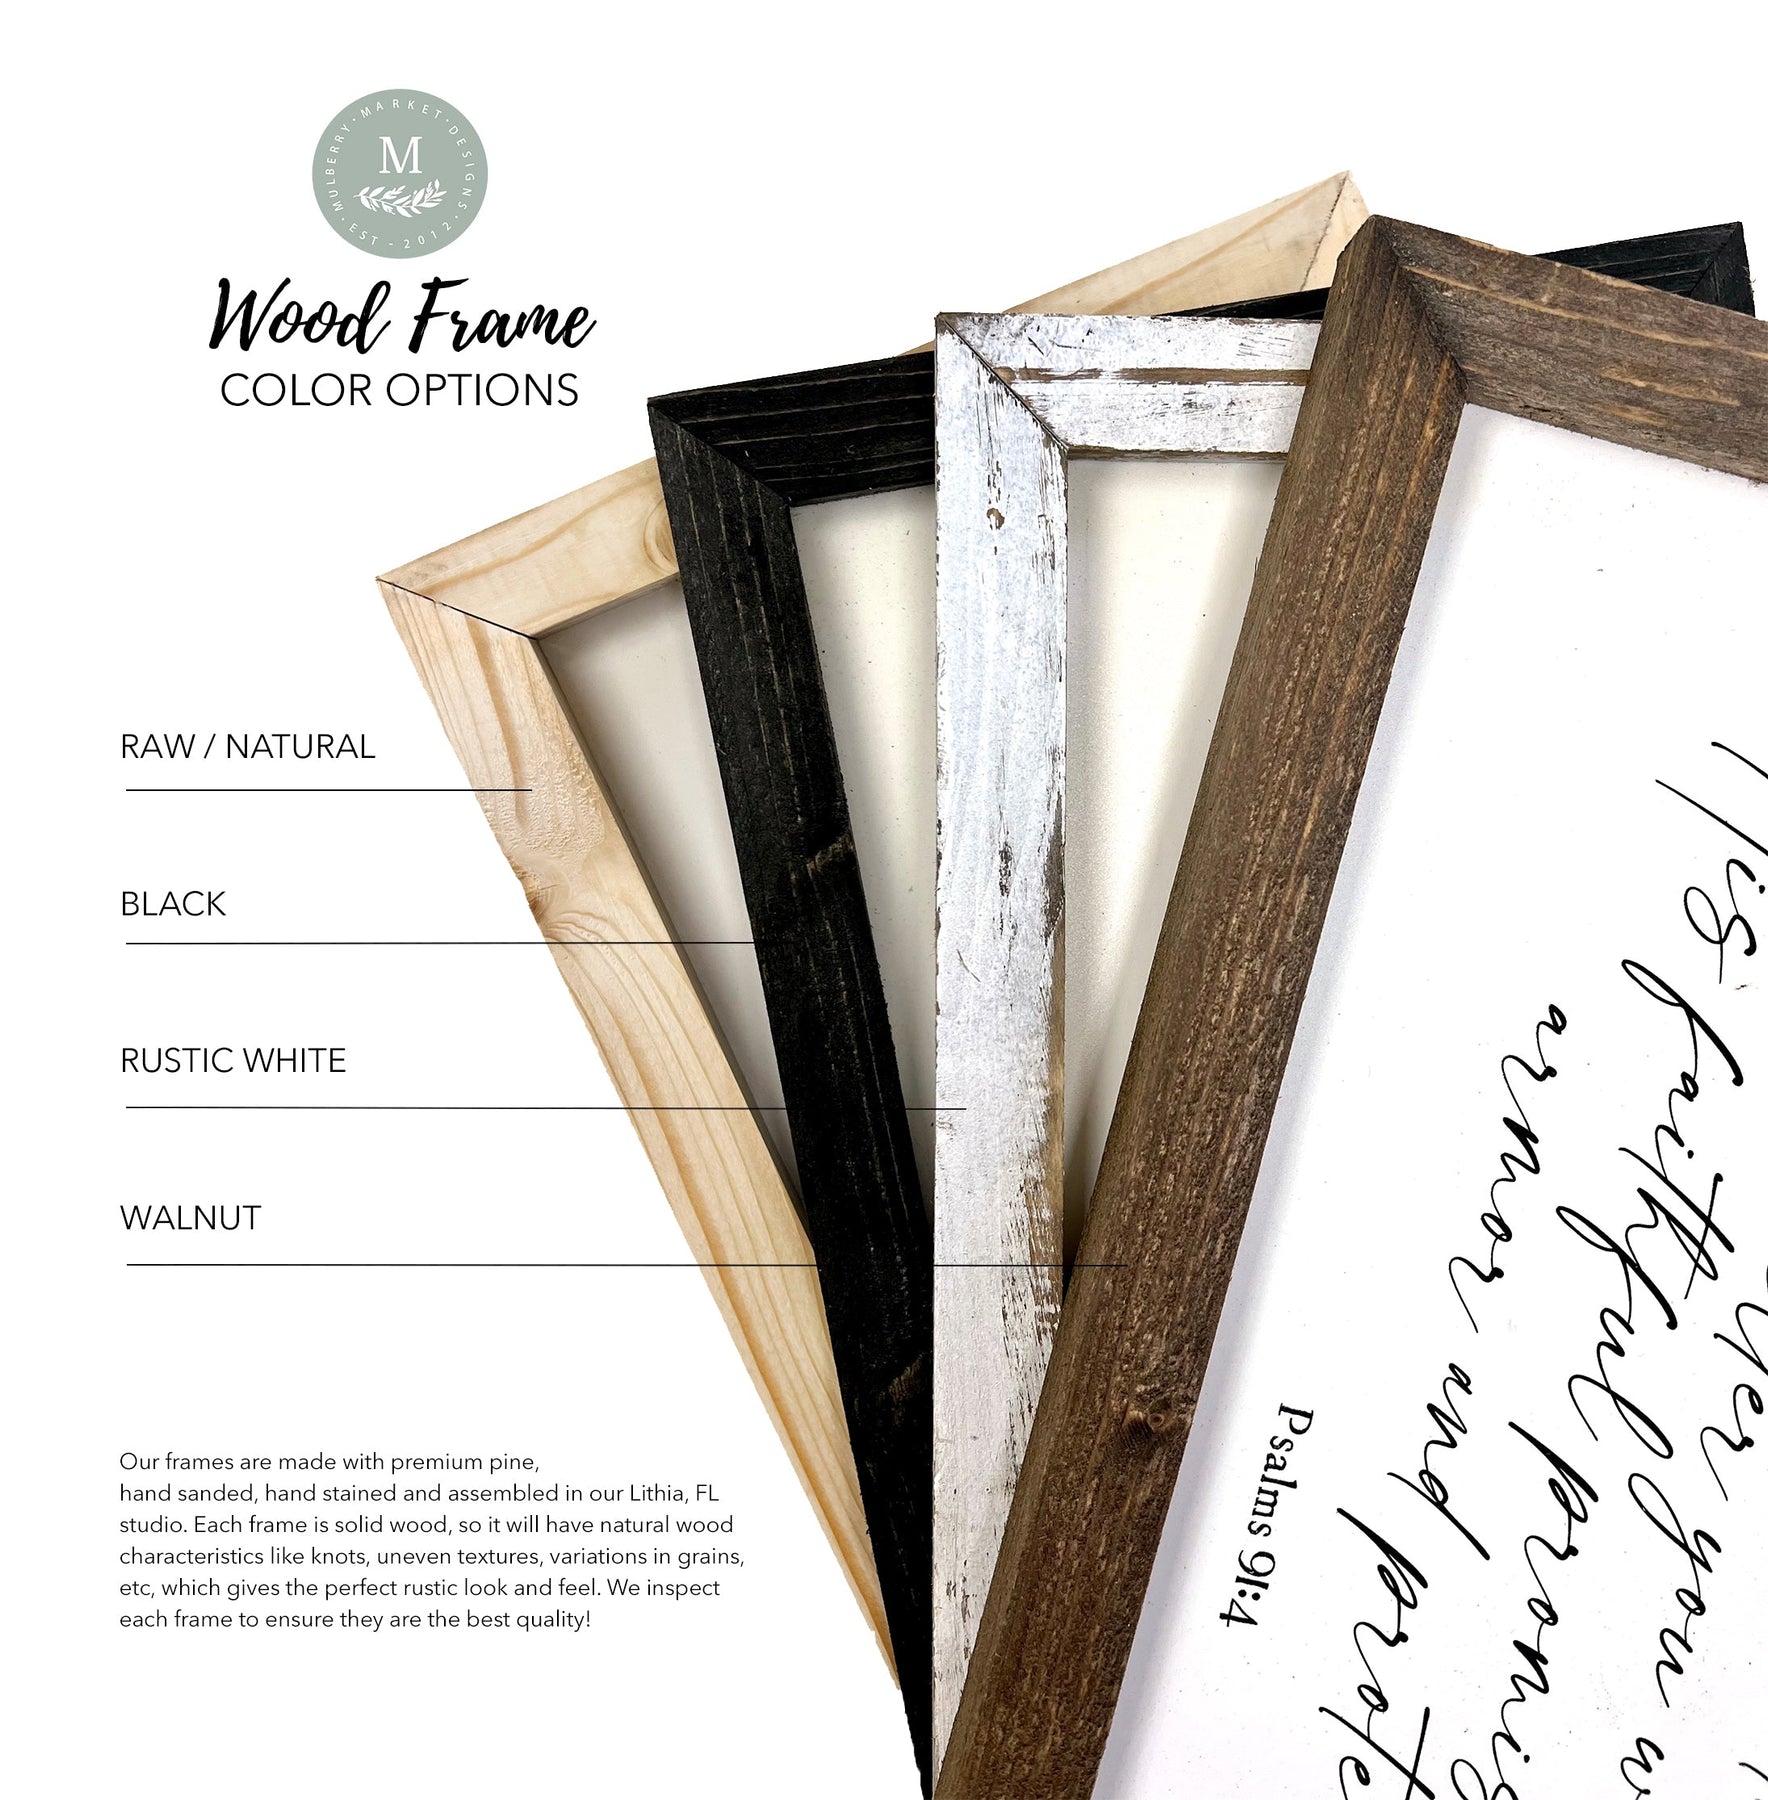 MULBERRY · MARKET · DESIGNS · EST - 2012 ·
M
Wood Frame
COLOR OPTIONS
RAW / NATURAL
BLACK
RUSTIC WHITE
WALNUT
Our frames are made with premium pine,
hand sanded, hand stained and assembled in our Lithia, FL
studio. Each frame is solid wood, so it will have natural wood
characteristics like knots, uneven textures, variations in grains,
etc, which gives the perfect rustic look and feel. We inspect
each frame to ensure they are the best quality!
you
His faithful
armor and
Psalms 91:4